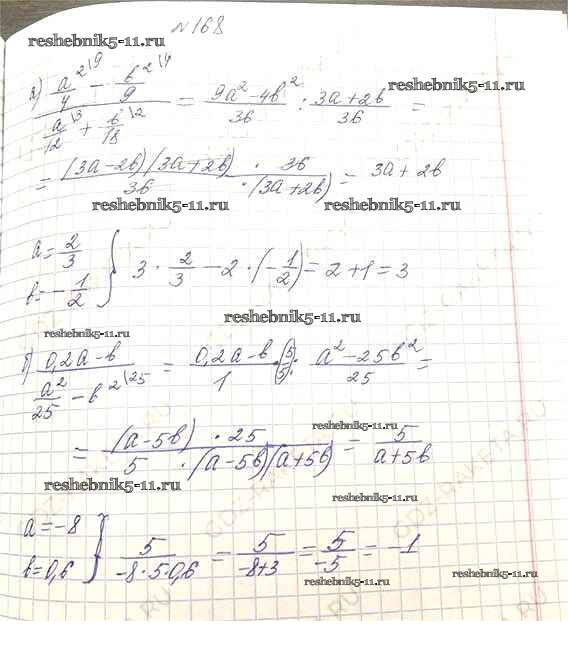 №168
reshebnik5-11.ru
а) (a²\9/4 - b²\4/9)/(a\3/12 + b\2/18) = (9a²-4b²)/36 : (3a+2b)/36 =
= ((3a-2b)(3a+2b) · 36)/(36 · (3a+2b)) = 3a+2b
reshebnik5-11.ru reshebnik5-11.ru
a = 2/3
b = -1/2 } 3 · 2/3 - 2 · (-1/2) = 2+1 = 3
reshebnik5-11.ru
б) (0,2a-b)/(a²/25 - b²\25) = (0,2a-b)/1 · (5/5) : (a²-25b²)/25 =
reshebnik5-11.ru
= ((a-5b) · 25)/(5 · (a-5b)(a+5b)) = 5/(a+5b)
reshebnik5-11.ru
reshebnik5-11.ru
a = -8
b = 0,6 } 5/(-8·5·0,6) = 5/(-8+3) = 5/-5 = -1
reshebnik5-11.ru reshebnik5-11.ru